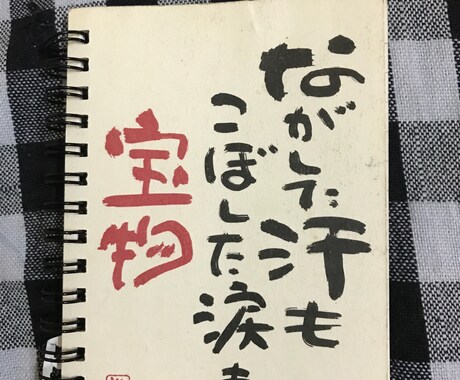 ながした汗も
こぼした涙も
宝物